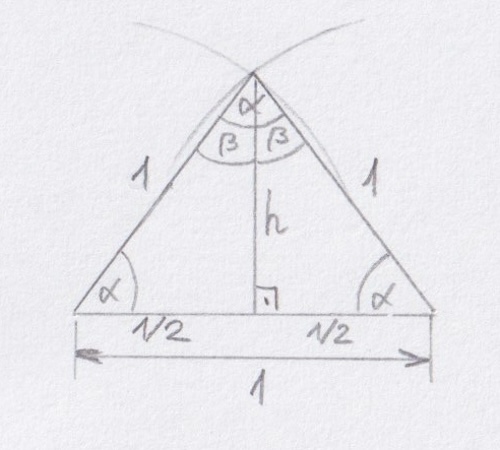 α
β β
1 1
h
α α
1/2 1/2
1